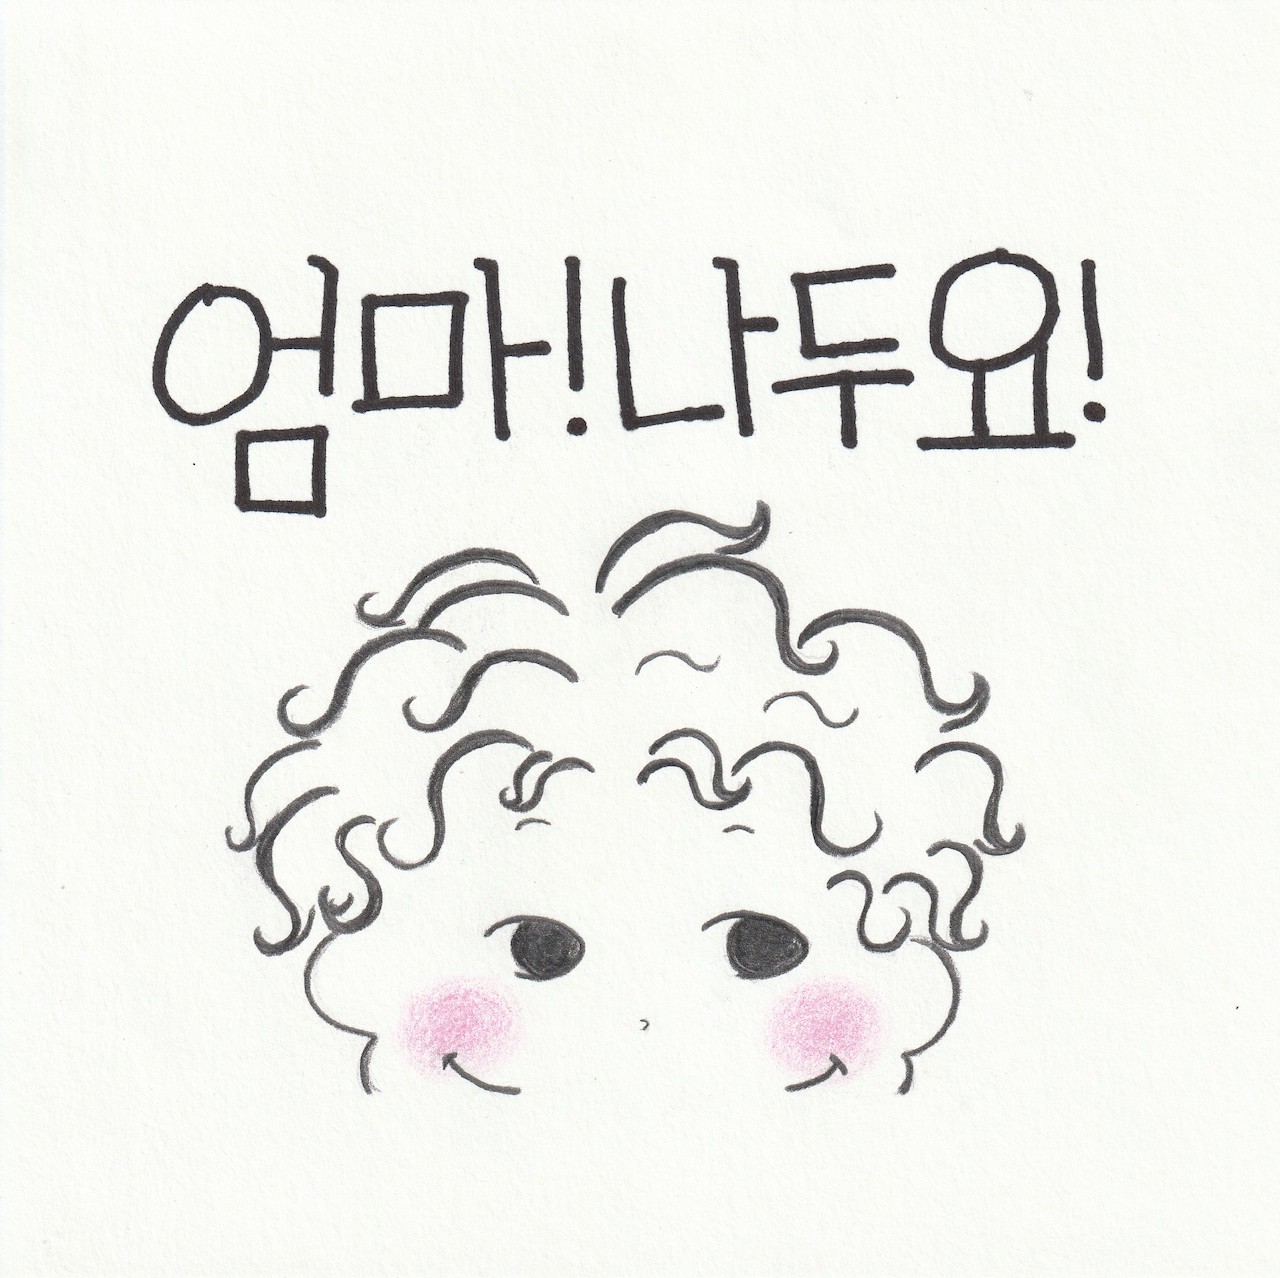 엄마!나두요!